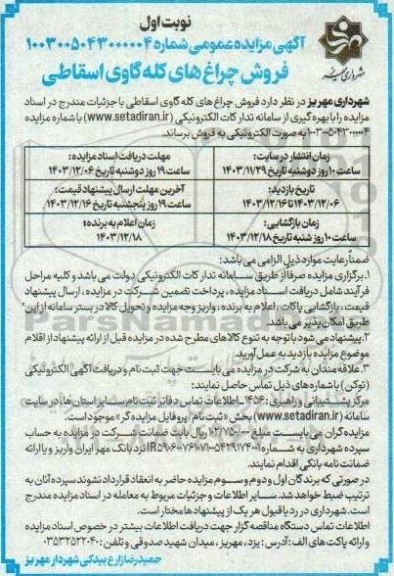 نوبت اول
آگهی مزایده عمومی شماره ۱۰۰۳۰۰۵۰۴۳۰۰۰۰۰۴
فروش چراغ های کله گاوی اسقاطی
شهرداری مهریز
شهرداری مهریز در نظر دارد فروش چراغ های کله گاوی اسقاطی با جزئیات مندرج در اسناد
مزایده را با بهره گیری از سامانه تدارکات الکترونیکی (www.setadiran.ir) با شماره مزایده
۱۰۰۳۰۰۵۰۴۳۰۰۰۰۰۴ به صورت الکترونیکی به فروش برساند.
زمان انتشار در سایت:
ساعت ۱۰ روز دوشنبه تاریخ ۱۴۰۳/۱۱/۲۹
مهلت دریافت اسناد مزایده:
ساعت ۱۹ روز دوشنبه تاریخ ۱۴۰۳/۱۲/۰۶
تاریخ بازدید:
۱۴۰۳/۱۲/۰۶ تا ۱۴۰۳/۱۲/۱۶
آخرین مهلت ارسال پیشنهاد قیمت:
ساعت ۱۹ روز پنجشنبه تاریخ ۱۴۰۳/۱۲/۱۶
زمان بازگشایی:
ساعت ۱۰ روز شنبه تاریخ ۱۴۰۳/۱۲/۱۸
زمان اعلام به برنده:
۱۴۰۳/۱۲/۱۸
ضمناً رعایت موارد ذیل الزامی می باشد:
۱. برگزاری مزایده صرفا از طریق سامانه تدارکات الکترونیکی دولت می باشد و کلیه مراحل
فرآیند شامل دریافت اسناد مزایده، پرداخت تضمین شرکت در مزایده، ارسال پیشنهاد
قیمت، بازگشایی پاکات، اعلام به برنده، واریز وجه مزایده و تحویل کالا در بستر سامانه از این
طریق امکان پذیر می باشد.
۲. پیشنهاد می شود با توجه به تنوع کالاهای مطرح شده در مزایده قبل از ارائه پیشنهاد از اقلام
موضوع مزایده بازدید به عمل آورید.
۳. علاقه مندان به شرکت در مزایده می بایست جهت ثبت نام و دریافت گواهی الکترونیکی
(توکن) با شماره های ذیل تماس حاصل نمایند:
مرکز پشتیبانی و راهبری: ۱۴۵۶ - اطلاعات تماس دفاتر ثبت نام سایر استان ها، در سایت
سامانه (www.setadiran.ir) بخش «ثبت نام / پروفایل مزایده گر» موجود است.
مزایده گران می بایست مبلغ ۱۰۲/۷۵۰/۰۰۰ ریال بابت ضمانت شرکت در مزایده به حساب
سپرده شهرداری به شماره نزد بانک مهر ایران واریز و یا ارائه
ضمانت نامه بانکی اقدام نمایند.
در صورتی که برندگان اول و دوم و سوم مزایده حاضر به انعقاد قرارداد نشوند سپرده آنان به
ترتیب ضبط خواهد شد. سایر اطلاعات و جزئیات مربوط به معامله در اسناد مزایده مندرج
است. شهرداری در رد یا قبول هر یک از پیشنهادها مختار است.
اطلاعات تماس دستگاه مناقصه گزار جهت دریافت اطلاعات بیشتر در خصوص اسناد مزایده
و ارائه پاکت های الف: آدرس: یزد، مهریز، میدان شهید صدوقی و تلفن: ۰۳۵۳۲۵۲۲۰۴۰
حمیدرضا زارع بیدکی شهردار مهریز